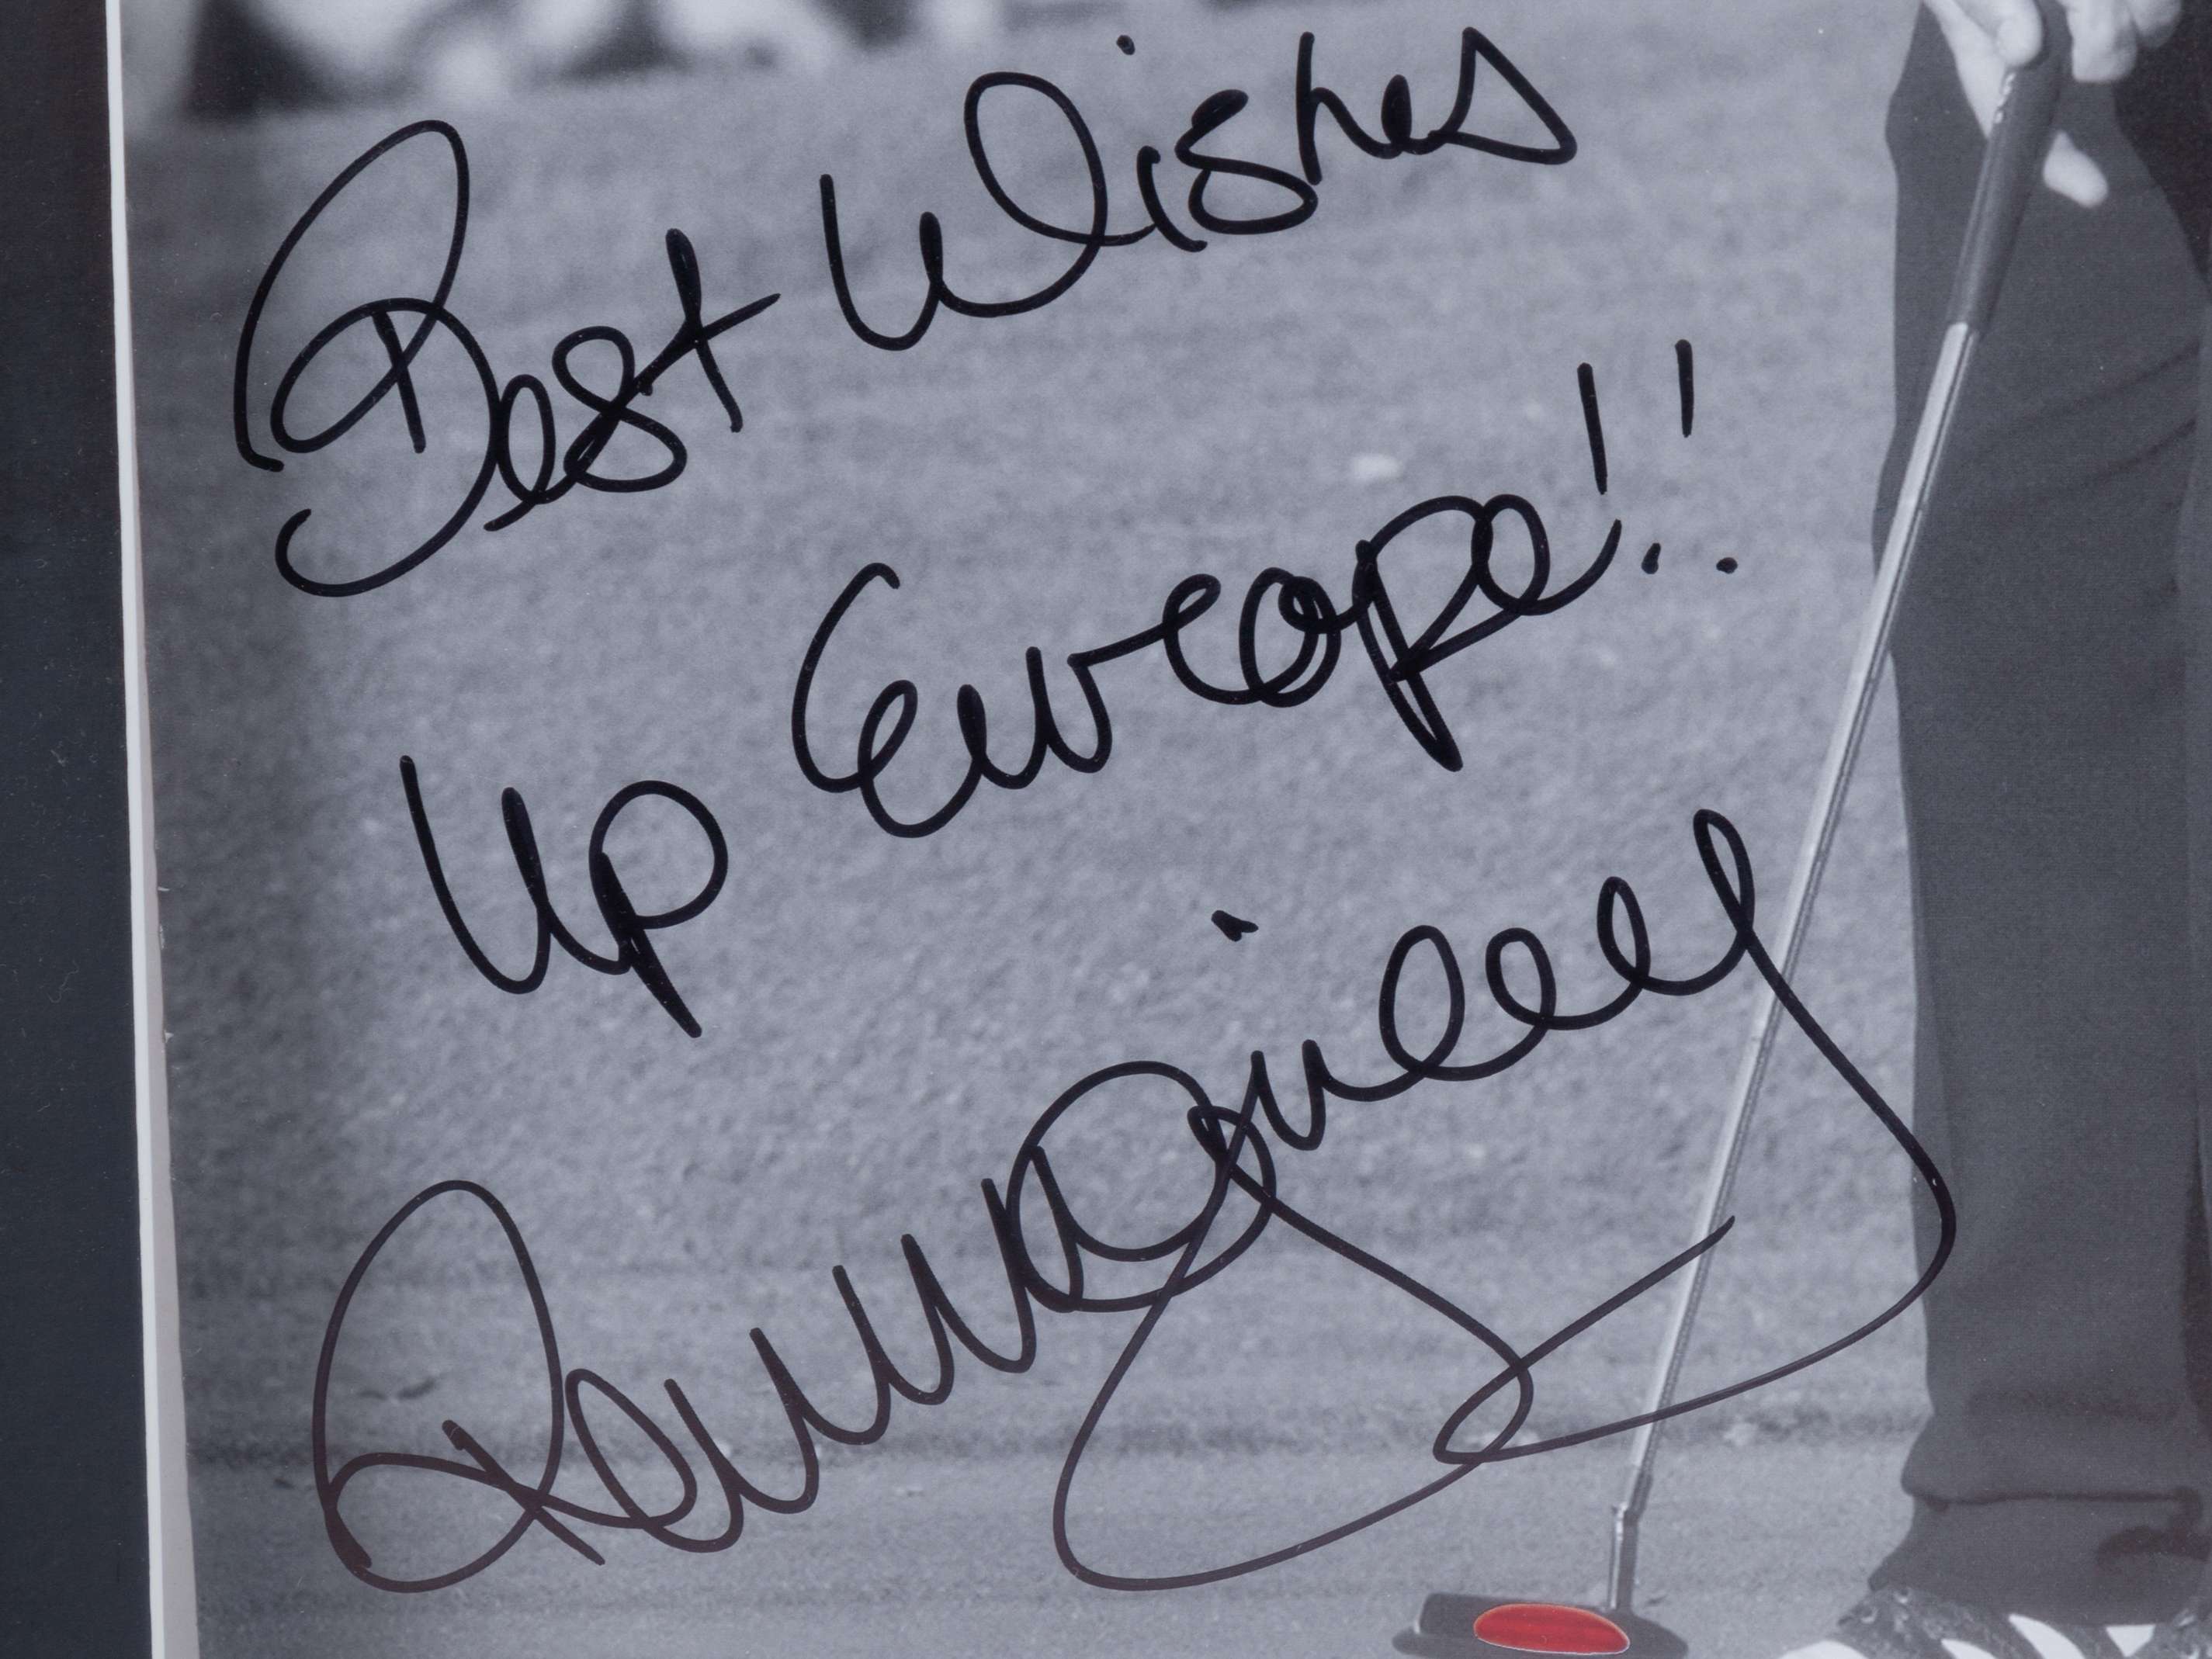 Best Wishes
Up Europe!!